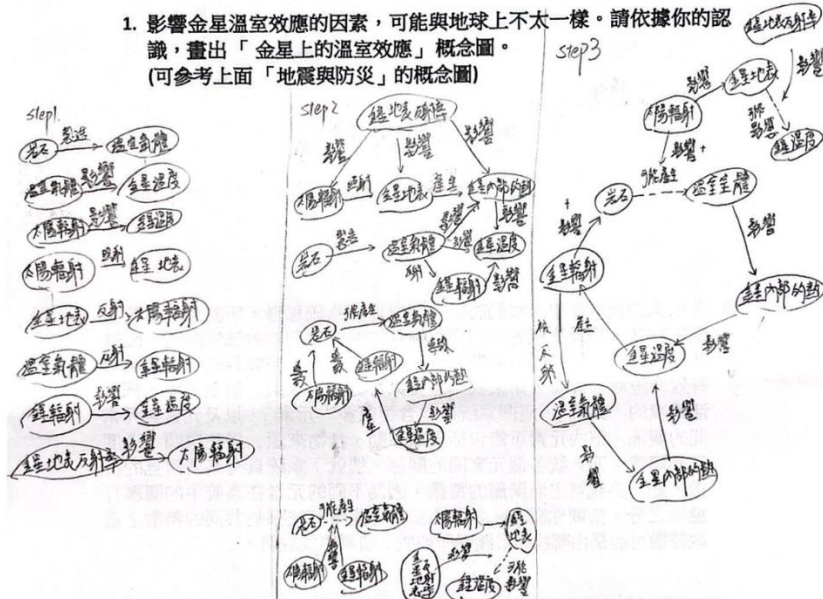 1. 影響金星溫室效應的因素，可能與地球上不太一樣。請依據你的認
識，畫出「 金星上的溫室效應」概念圖。
(可參考上面「地震與防災」的概念圖)
step1.
岩石 製造 溫室氣體
溫室氣體 影響 金星溫度
太陽輻射 影響 金星溫度
太陽輻射 照射 金星地表
金星地表 反射 太陽輻射
溫室氣體 反射 金星輻射
金星輻射 影響 金星溫度
金星地表反射率 影響 太陽輻射
step2
金星地表反射率
影響 影響 影響
太陽輻射 照射 金星地表 產生 金星內部的熱
影響 影響
岩石 製造 溫室氣體 影響 金星溫度
反射 金星輻射 影響
岩石 可能產生 溫室氣體
金星輻射
太陽輻射 金星內部的熱
影響
金星溫度
岩石 可能產生 溫室氣體
影響
太陽輻射 金星輻射
太陽輻射 金星地表
影響
金星溫度 可能影響
step3
金星地表反射率
影響
影響 金星地表
太陽輻射 可能影響
金星溫度
影響 +
岩石 可能產生 溫室氣體
+
影響 影響
金星輻射
金星內部的熱
產生
影響
金星溫度
溫室氣體
影響
影響
金星內部的熱